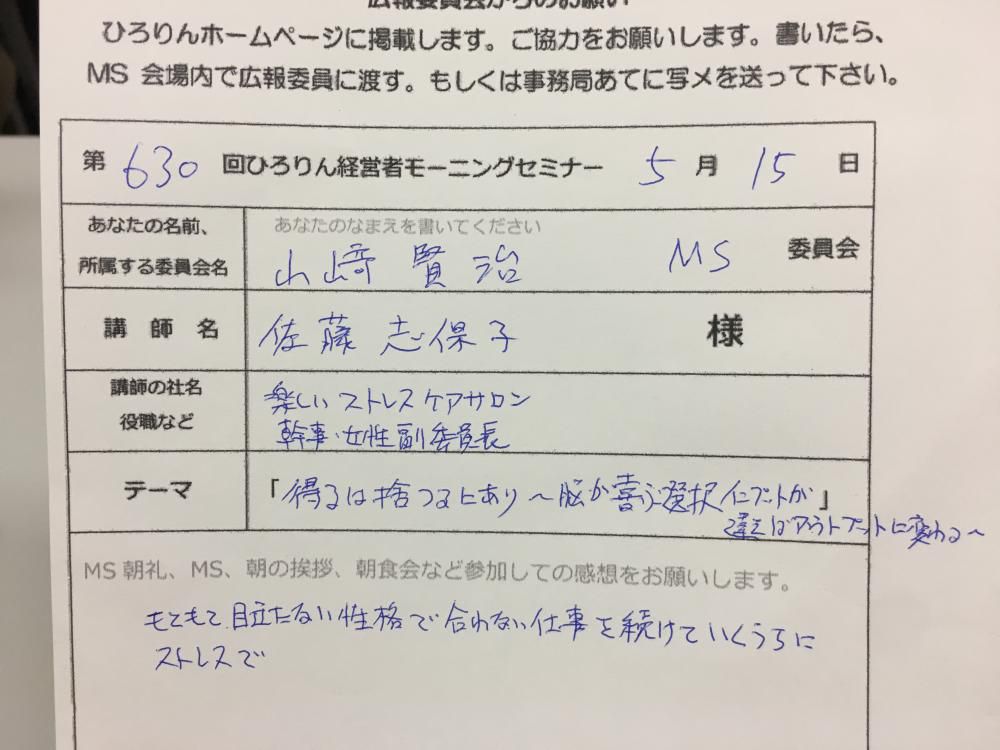 広報委員会からのお願い
ひろりんホームページに掲載します。ご協力をお願いします。書いたら、
MS 会場内で広報委員に渡す。もしくは事務局あてに写メを送って下さい。
第 630 回ひろりん経営者モーニングセミナー 5 月 15 日
あなたの名前、
所属する委員会名
あなたのなまえを書いてください
山﨑 賢治 MS 委員会
講師名 佐藤 志保子 様
講師の社名
役職など
楽しいストレスケアサロン
幹事・女性副委員長
テーマ 「得るは捨つるにあり～脳が喜ぶ選択インプットが」
違えばアウトプットに変わる～
MS 朝礼、MS、朝の挨拶、朝食会など参加しての感想をお願いします。
もともと、目立たない性格で合わない仕事を続けていくうちに
ストレスで